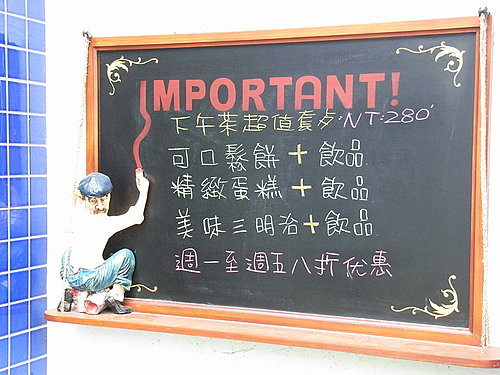 IMPORTANT!
下午茶超值套点·NT·280'
可口鬆餅+飲品
精緻蛋糕+飲品
美味三明治+飲品
週一至週五八折优惠